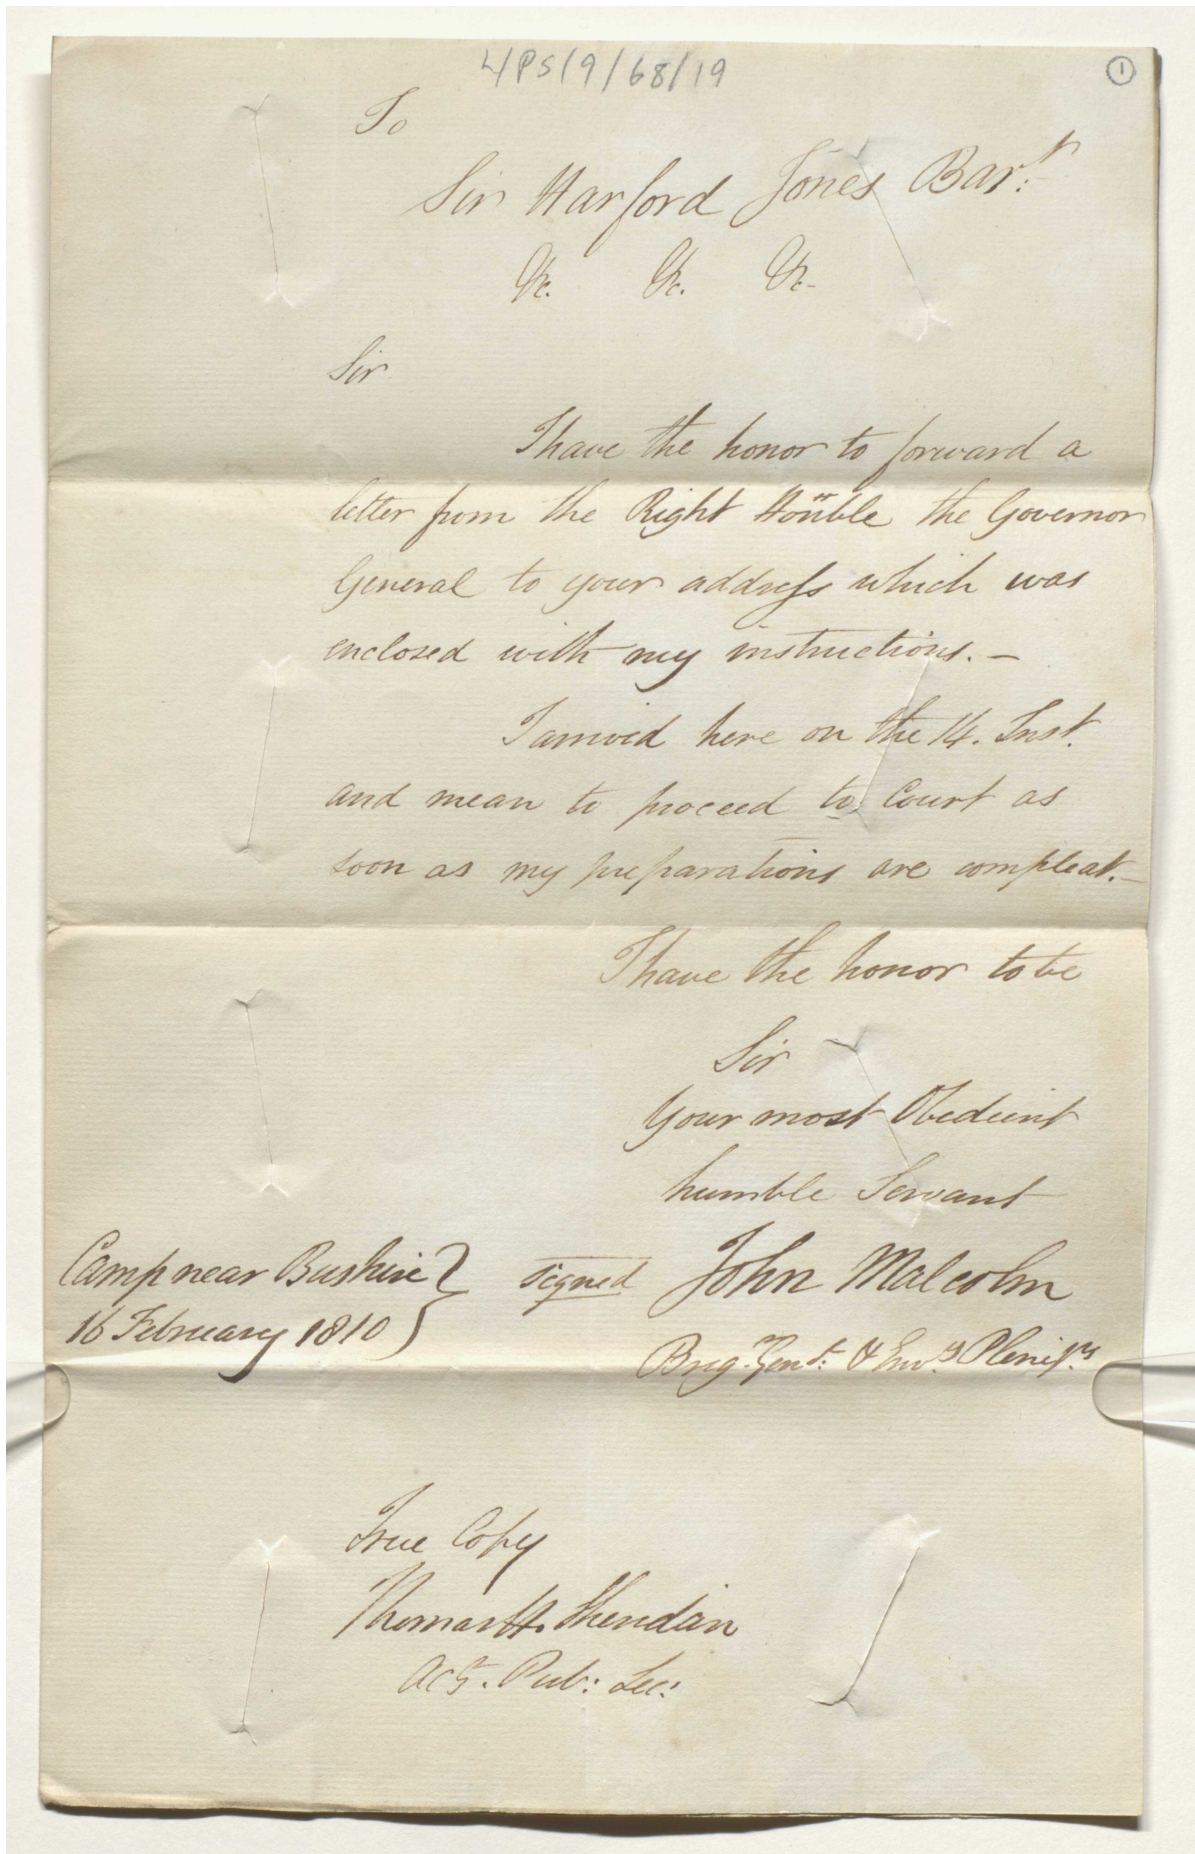 L/PS/9/68/19
1
To
Sir Harford Jones Bart:
&c. &c. &c.
Sir
I have the honor to forward a
letter from the Right Honble the Governor
General to your address which was
enclosed with my instructions. —
I arrived here on the 14. Inst.
and mean to proceed to Court as
soon as my preparations are compleat. —
I have the honor to be
Sir
Your most Obedient
humble Servant
Camp near Bushire } signed John Malcolm
16 February 1810 }
Brigr. Genl: & Envy. Plenipy.
True Copy
Thomas H. Sheridan
Actg. Pub: Sec: